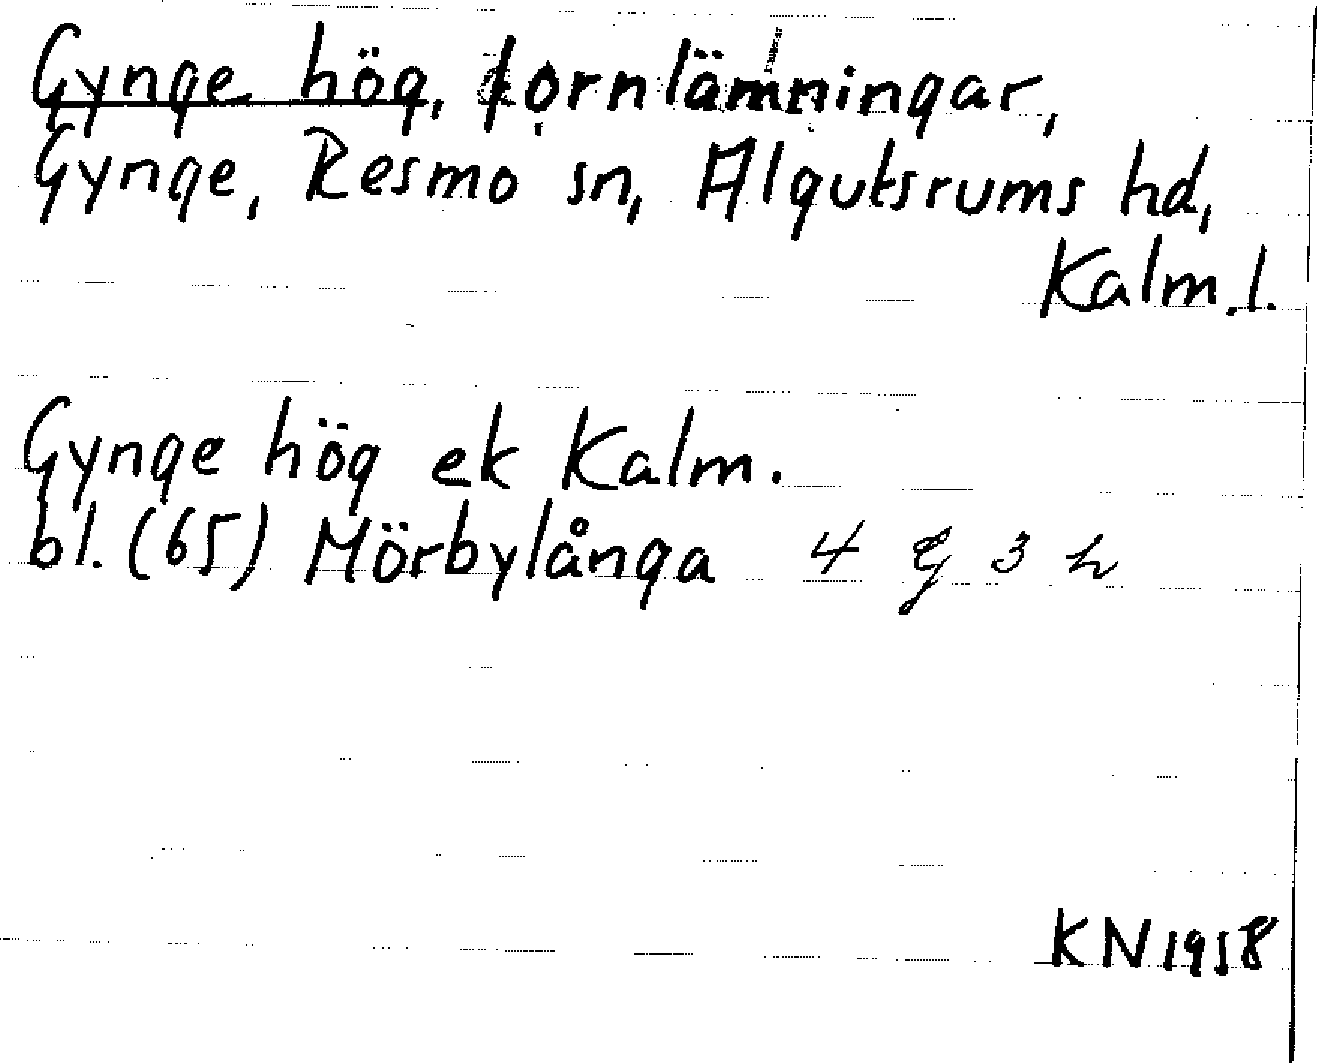 Gynge hög, fornlämningar,
Gynge, Resmo sn, Algutsrums hd,
Kalm.l.
Gynge hög ek Kalm.
bl. (65) Mörbylånga 4 G 3 h
KN 1958